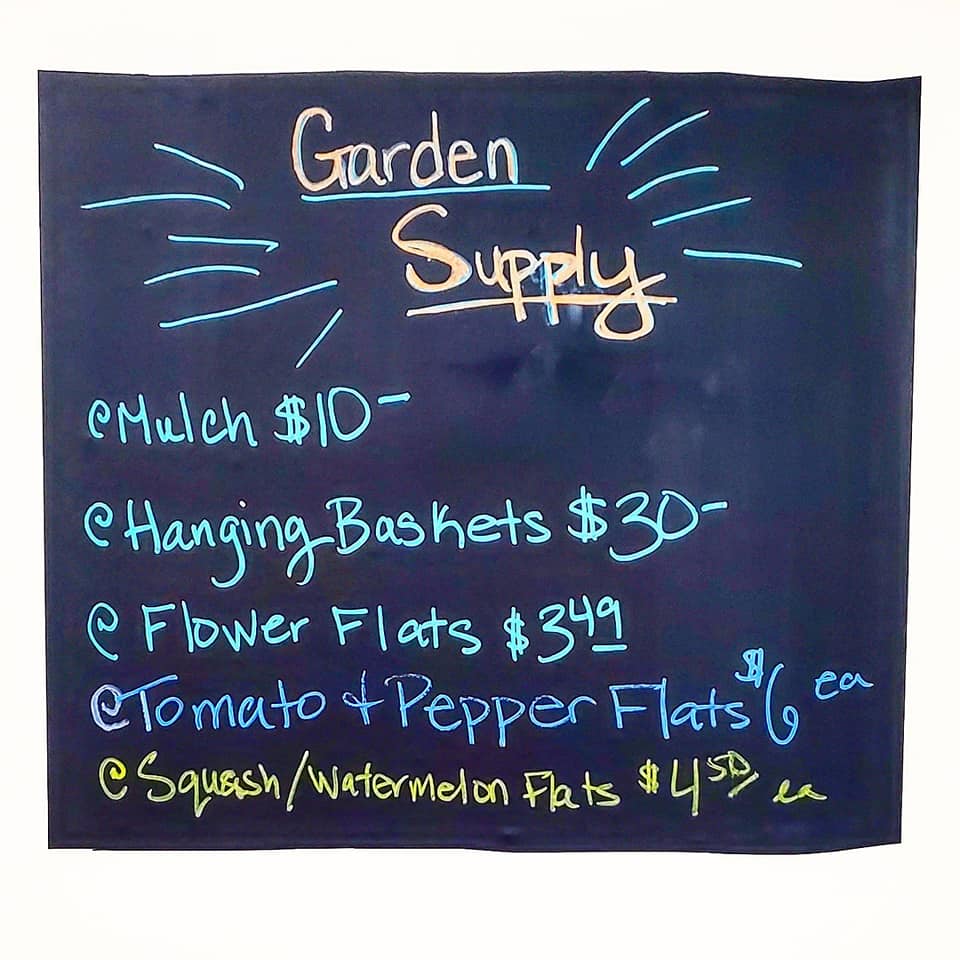 Garden
Supply
Mulch $10-
Hanging Baskets $30-
Flower Flats $3 49
Tomato & Pepper Flats $6 ea
Squash/Watermelon Flats $4 50 ea